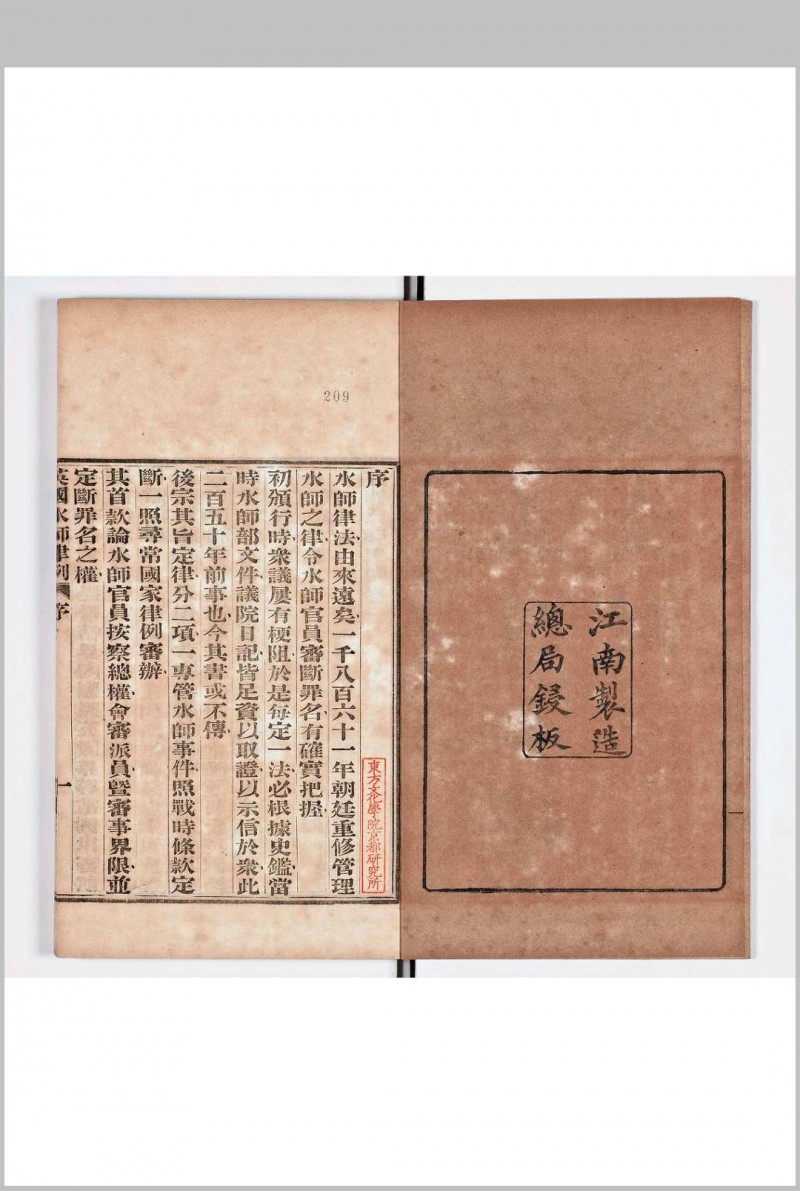 江南製造
總局鋟板
209
序
水師律法由來遠矣一千八百六十一年朝廷重修管理
水師之律令水師官員審斷罪名有確實把握
初頒行時衆議屢有梗阻於是每定一法必根據史鑑當
時水師部文件議院日記皆足資以取證以示信於衆此
二百五十年前事也今其書或不傳
後宗其旨定律分二項一專管水師事件照戰時條款定
斷一照尋常國家律例審辦
其首款論水師官員按察總權會審派員曁審事界限並
定斷罪名之權
英國水師律例 序 一
東方文化學院京都研究所